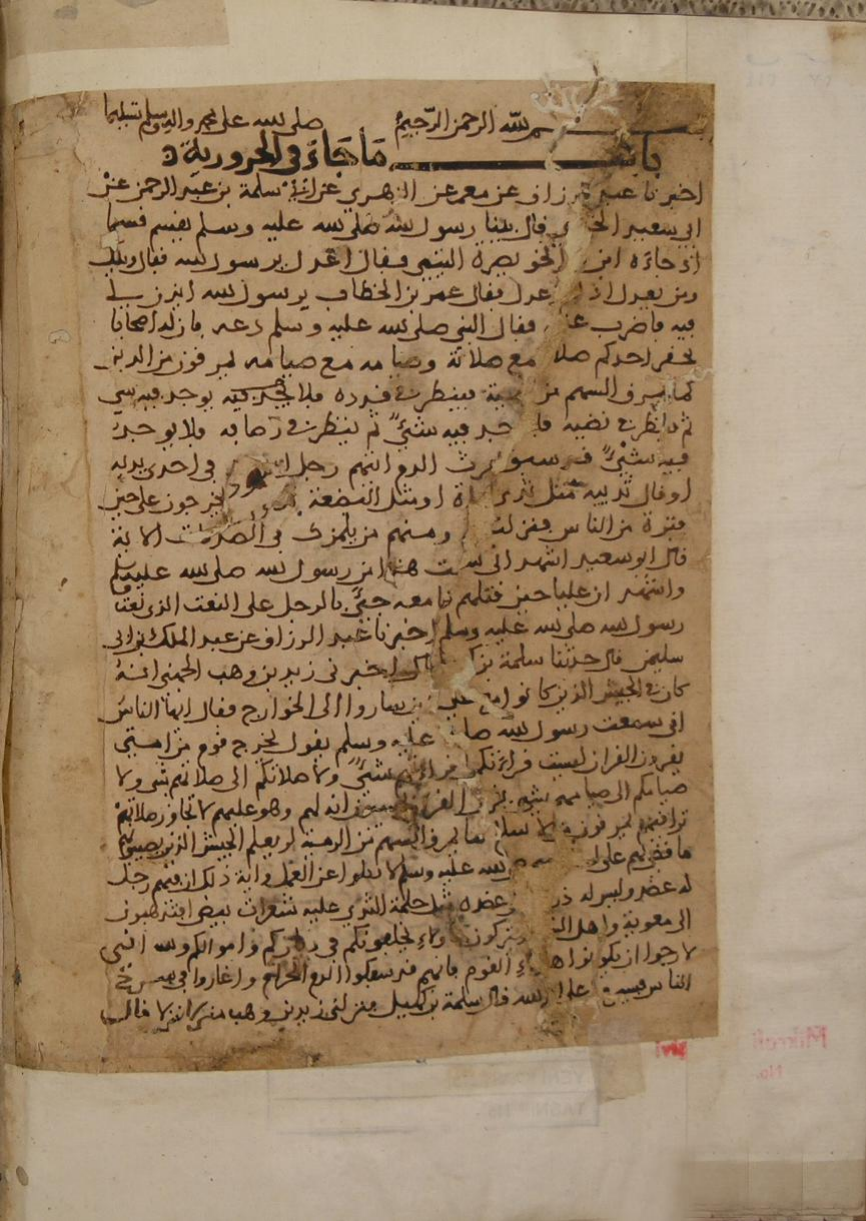 بسم الله الرحمن الرحيم صلى الله على محمد واله وسلم تسليما
باب ما جاء في الحرورية
اخبرنا عبد الرزاق عن معمر عن الزهري عن ابي سلمة بن عبد الرحمن عن
ابي سعيد الخ قال بينا رسول الله صلى الله عليه وسلم يقسم قسما
اذ جاءه ابن الخويصرة التميمي فقال اعدل يرسول الله فقال ويلك
ومن يعدل اذا اعدل فقال عمر بن الخطاب يرسول الله ائذن لي
فيه فاضرب عنقه فقال النبي صلى الله عليه وسلم دعه فان له اصحابا
يحقر احدكم صلاته مع صلاته وصيامه مع صيامه يمرقون من الدين
كما يمرق السهم من الرمية فينظر في قذذه فلا يوجد فيه شي
ثم ينظر في نضيه فلا يوجد فيه شيء ثم ينظر في رصافه فلا يوجد
فيه شيء قد سبق الفرث الدم ايتهم رجل في احدى يديه
او قال ثدييه مثل ثدي المراة او مثل البضعة يخرجون على حين
فترة من الناس فنزلت ومنهم من يلمزك في الصدقات الاية
قال ابو سعيد اشهد اني سمعت هذا من رسول الله صلى الله عليه وسلم
واشهد ان عليا حين قتلهم وانا معه جيء بالرجل على النعت الذي نعت
رسول الله صلى الله عليه وسلم اخبرنا عبد الرزاق عن عبد الملك بن ابي
سليمن قال حدثنا سلمة بن كهيل قال اخبرني زيد بن وهب الجهني انه
كان في الجيش الذين كانوا مع علي الذين ساروا الى الخوارج فقال ايها الناس
اني سمعت رسول الله صلى الله عليه وسلم يقول يخرج قوم من امتي
يقرءون القران ليست قراءتكم الى قراءتهم شيء ولا صلاتكم الى صلاتهم شي ولا
صيامكم الى صيامهم شيء يقرءون القران يحسبون انه لهم وهو عليهم لا تجاوز صلاتهم
تراقيهم يمرقون من الاسلام كما يمرق السهم من الرمية لو يعلم الجيش الذين يصيبونهم
ما قضي لهم على لسان نبيهم صلى الله عليه وسلم لاتكلوا عن العمل واية ذلك ان فيهم رجل
له عضد وليس له ذراع عضده مثل حلمة الثدي عليه شعرات بيض افتذهبون
الى معوية واهل الشام وتتركون هؤلاء يخلفونكم في دياركم واموالكم والله اني
لارجوا ان يكونوا هؤلاء القوم فانهم قد سفكوا الدم الحرام واغاروا في سرح
الناس فسيروا على اسم الله قال سلمة بن كهيل فنزلني زيد بن وهب منزلا منزلا قال